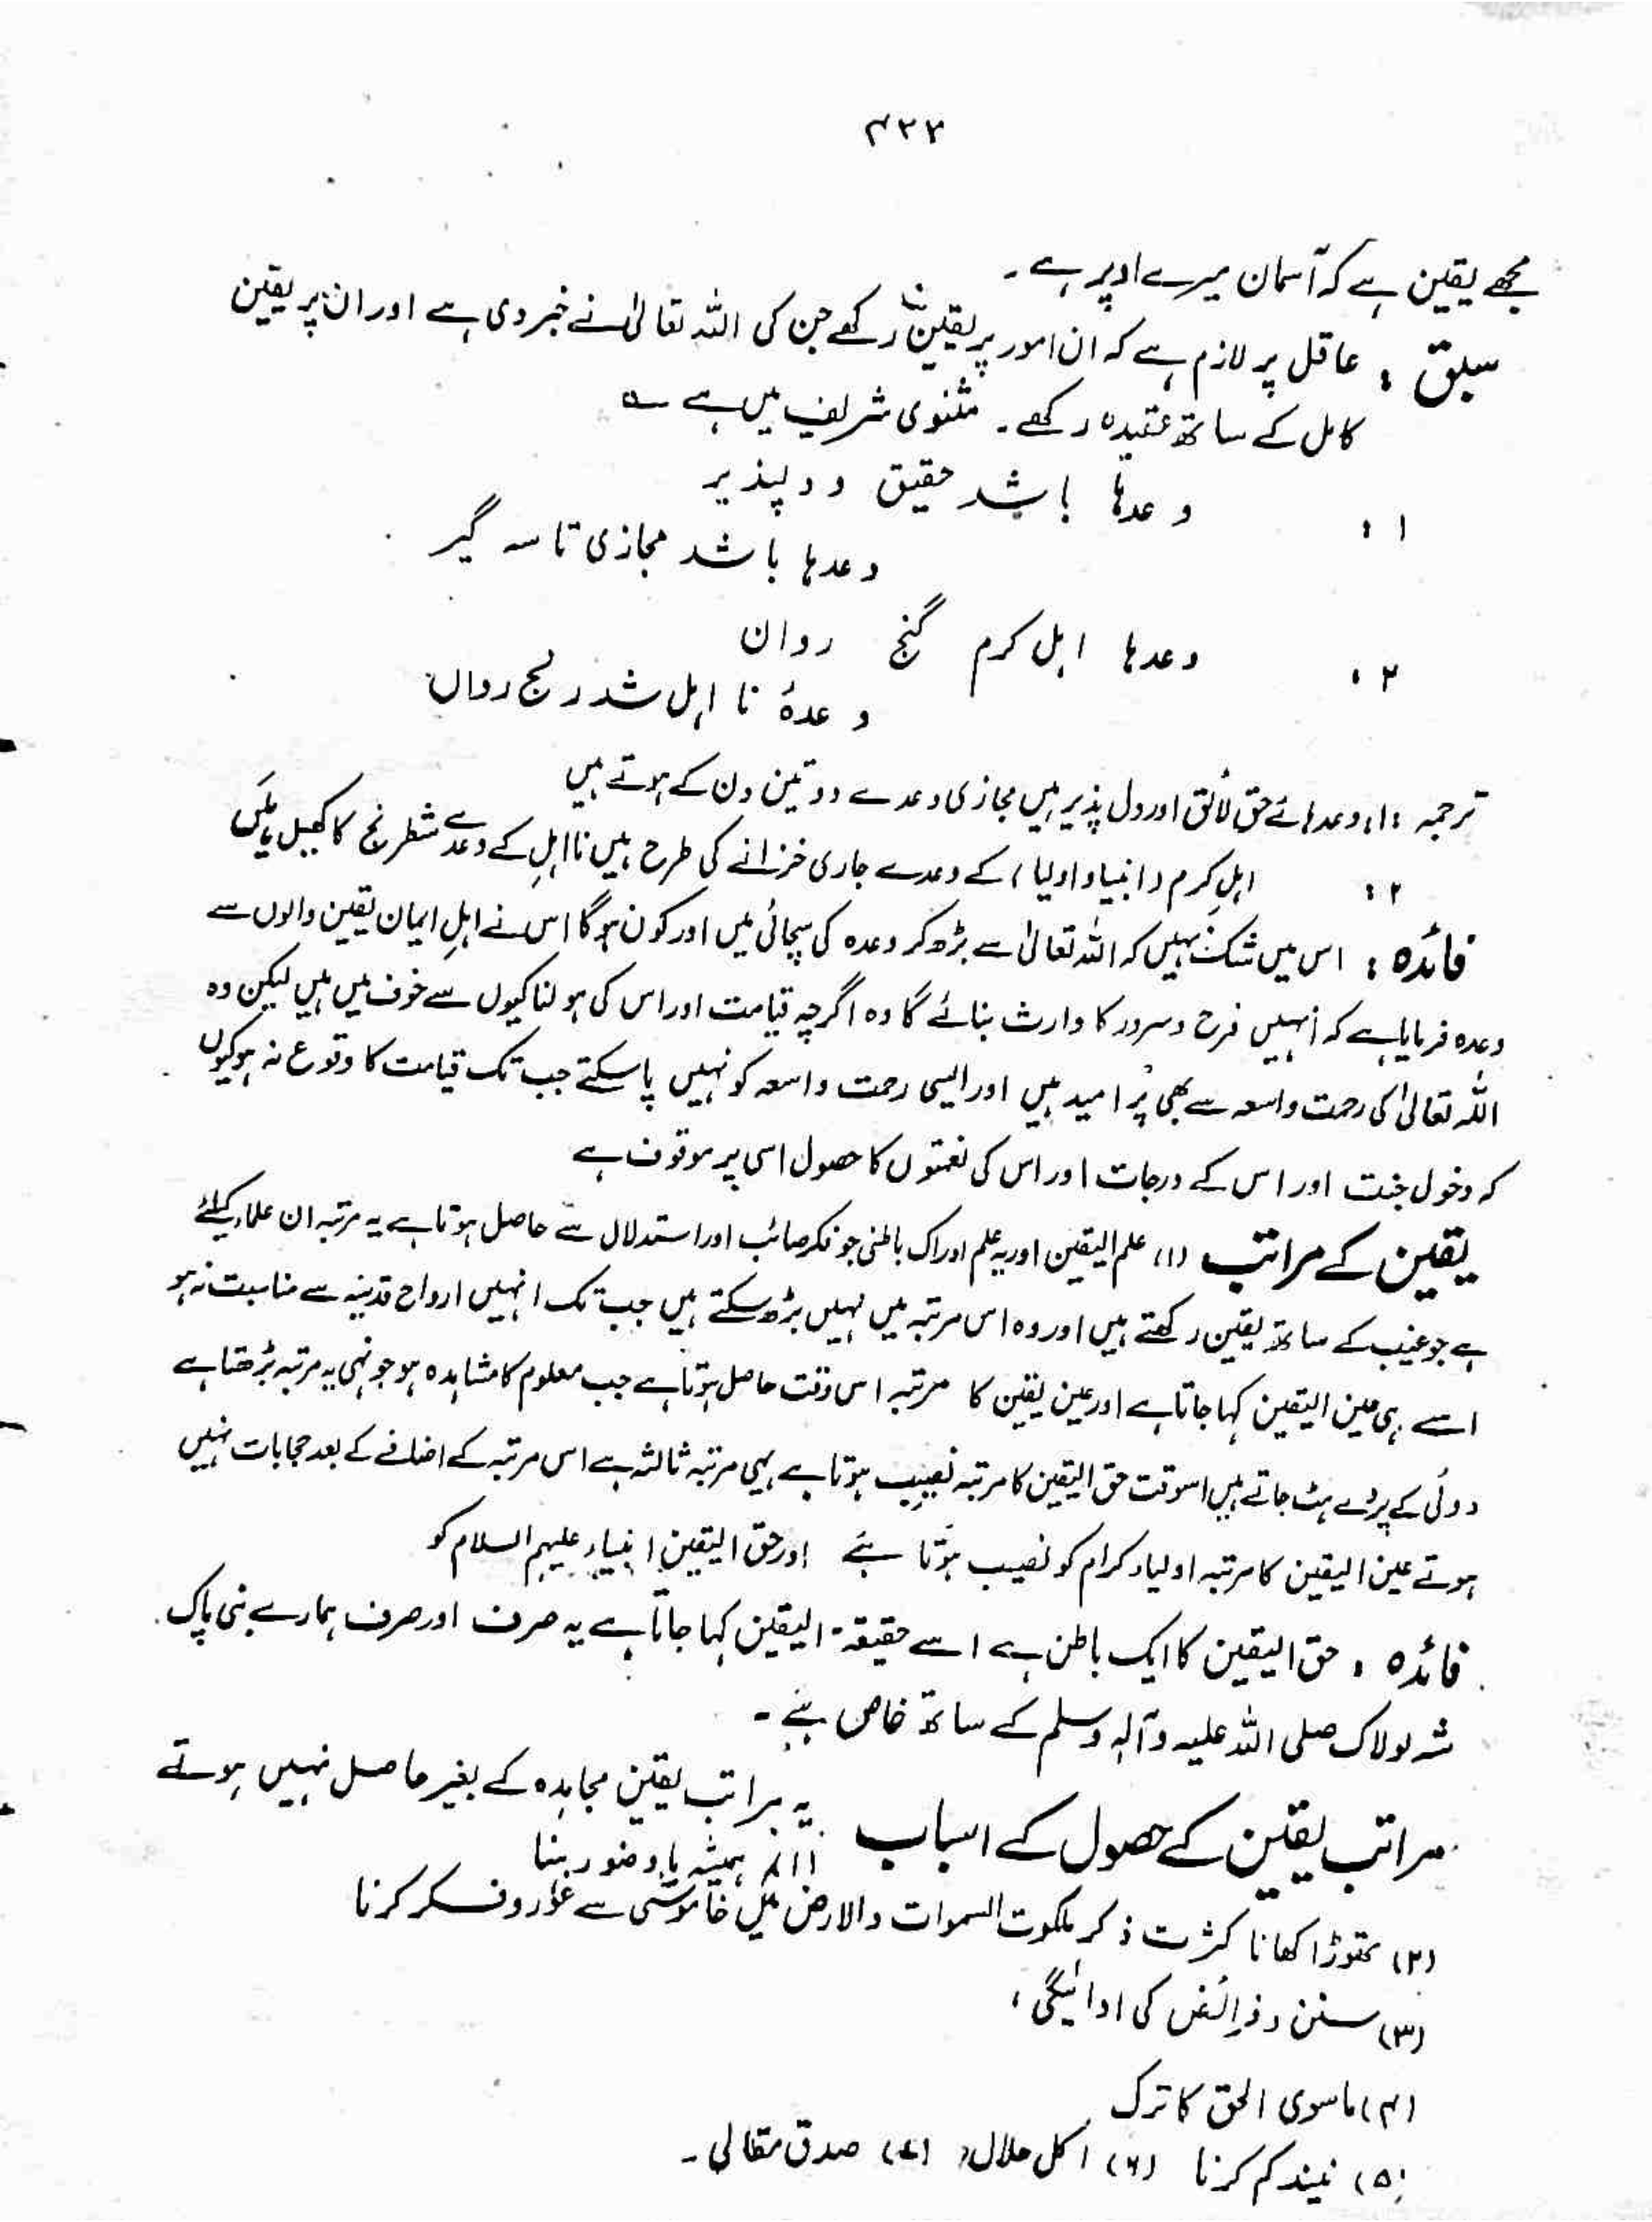 ۴۲۲
مجھے یقین ہے کہ آسمان میرے اوپر ہے ۔
سبق : عاقل پر لازم ہے کہ ان امور پر یقین رکھے جن کی اللہ تعالیٰ نے خبر دی ہے اور ان پر یقین
کامل کے ساتھ عقیدہ رکھے ۔ مثنوی شریف میں ہے ؎
۱ : وعدہا باشد حقیق و دلپذیر
وعدہا باشد مجازی تاسہ گیر
۲ : وعدہا اہل کرم گنج رواں
وعدۂ نا اہل شد رنج رواں
ترجمہ :۱: وعدہائے حق لائق اور دل پذیر ہیں مجازی وعدے دو تین دن کے ہوتے ہیں
۲ : اہلِ کرم (انبیاء و اولیا) کے وعدے جاری خزانے کی طرح ہیں نا اہلِ کے وعدے شطرنج کا کھیل
فائدہ : اس میں شک نہیں کہ اللہ تعالیٰ سے بڑھ کر وعدہ کی سچائی میں اور کون ہوگا اس نے اہلِ ایمان یقین والوں سے
وعدہ فرمایا ہے کہ انہیں فرح و سرور کا وارث بنائے گا وہ اگرچہ قیامت اور اس کی ہولناکیوں سے خوف میں ہیں لیکن وہ
اللہ تعالیٰ کی رحمت واسعہ سے بھی پُر امید ہیں اور ایسی رحمت واسعہ کو نہیں پا سکتے جب تک قیامت کا وقوع نہ ہو کیوں
کہ دخول جنت اور اس کے درجات اور اس کی نعمتوں کا حصول اسی پر موقوف ہے
یقین کے مراتب (۱) علم الیقین اور یہ علم ادراک باطنی جو فکر صائب اور استدلال سے حاصل ہوتا ہے یہ مرتبہ ان علماء کیلئے
ہے جو غیب کے ساتھ یقین رکھتے ہیں اور وہ اس مرتبہ میں نہیں بڑھ سکتے ہیں جب تک انہیں ارواح قدسیہ سے مناسبت نہ ہو
اسے ہی عین الیقین کہا جاتا ہے اور عین یقین کا مرتبہ اس وقت حاصل ہوتا ہے جب معلوم کا مشاہدہ ہو جونہی یہ مرتبہ بڑھتا ہے
دوئی کے پردے ہٹ جاتے ہیں اسوقت حق الیقین کا مرتبہ نصیب ہوتا ہے یہی مرتبہ ثالثہ ہے اس مرتبہ کے اضافے کے بعد حجابات نہیں
ہوتے عین الیقین کا مرتبہ اولیاء کرام کو نصیب ہوتا ہے اور حق الیقین انبیاء علیہم السلام کو
فائدہ : حق الیقین کا ایک باطن ہے اسے حقیقۃ الیقین کہا جاتا ہے یہ صرف اور صرف ہمارے نبی پاک
شہ لولاک صلی اللہ علیہ وآلہٖ وسلم کے ساتھ خاص ہے ۔
مراتب یقین کے حصول کے اسباب یہ مراتب یقین مجاہدہ کے بغیر حاصل نہیں ہوتے
(۱) ہمیشہ باوضو رہنا
(۲) تھوڑا کھانا کثرت ذکر ملکوت السموات والارض میں خاموشی سے غور و فکر کرنا
(۳) سنن و فرائض کی ادائیگی ،
(۴) ماسوی الحق کا ترک
(۵) نیند کم کرنا (۶) اکل حلال (۷) صدق مقالی ۔